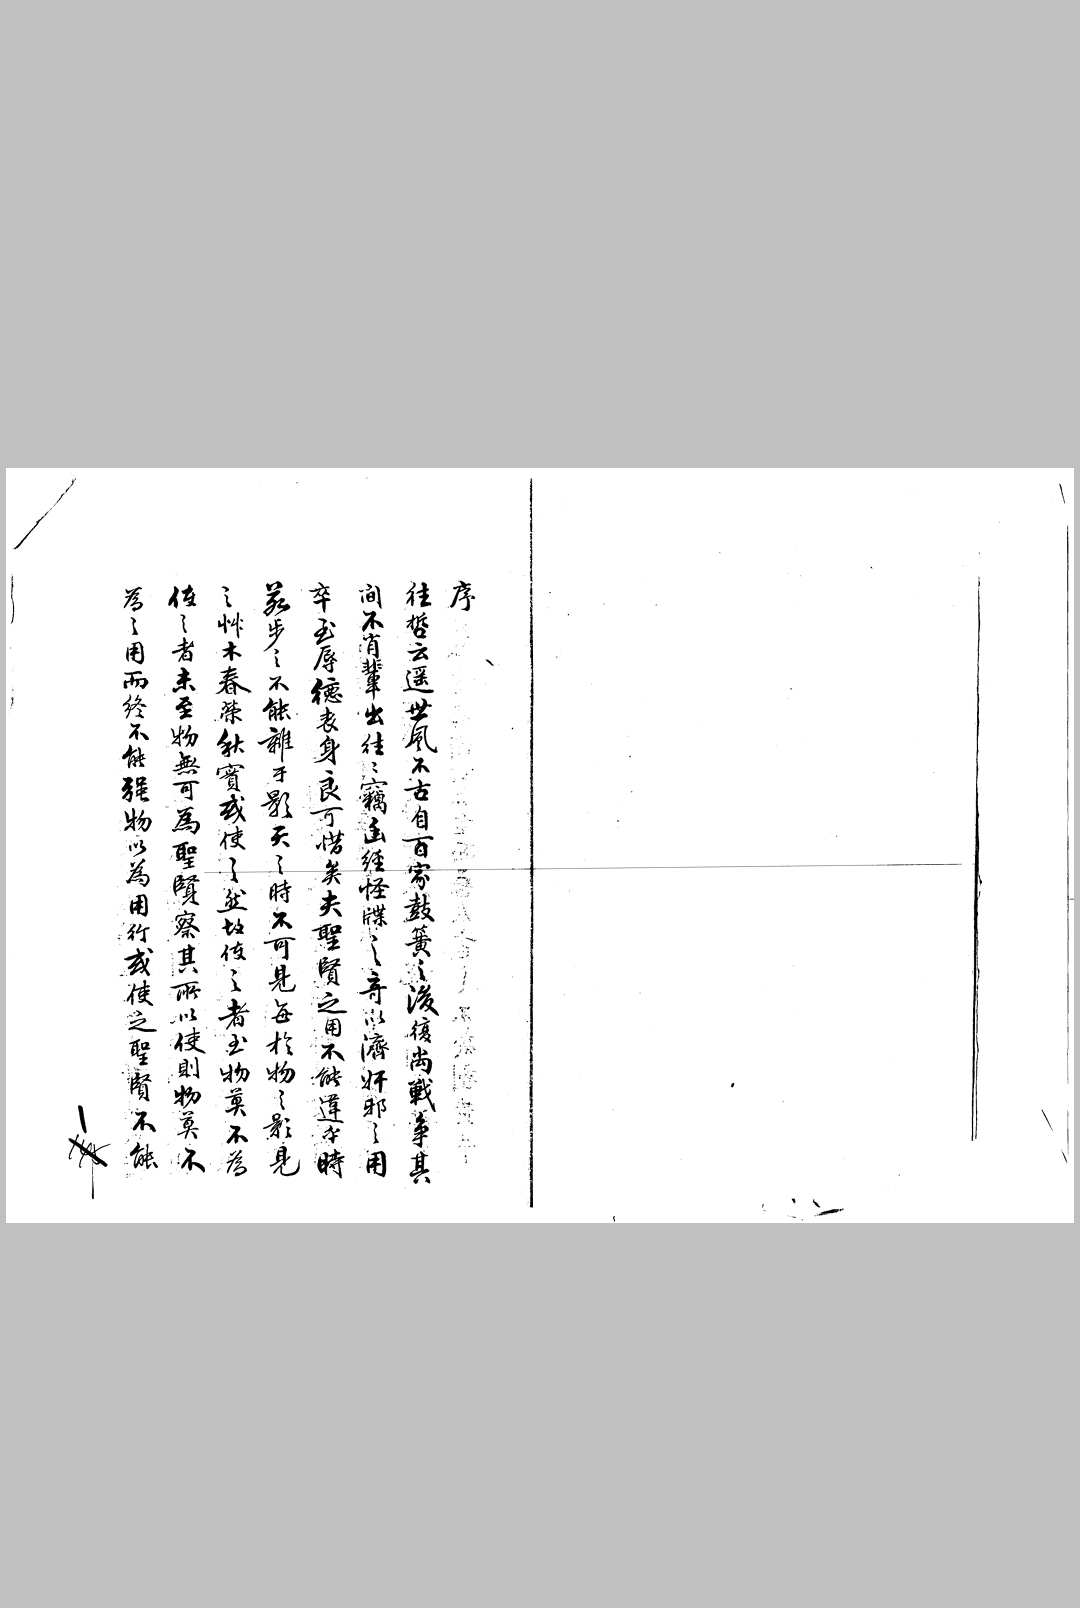 序
往哲云遥世風不古自百家鼓簧之後復尚戰爭其
间不肖輩出往〻竊幽經怪牒之奇以濟奸邪之用
卒至辱德丧身良可惜矣夫聖賢之用不能違乎時
若步之不能離乎影天之時不可見每於物之影見
之艸木春榮秋實或使之然故使之者至物莫不為
使之者未至物無可為聖賢察其所以使則物莫不
為之用而終不能强物以為用行或使之聖賢不能